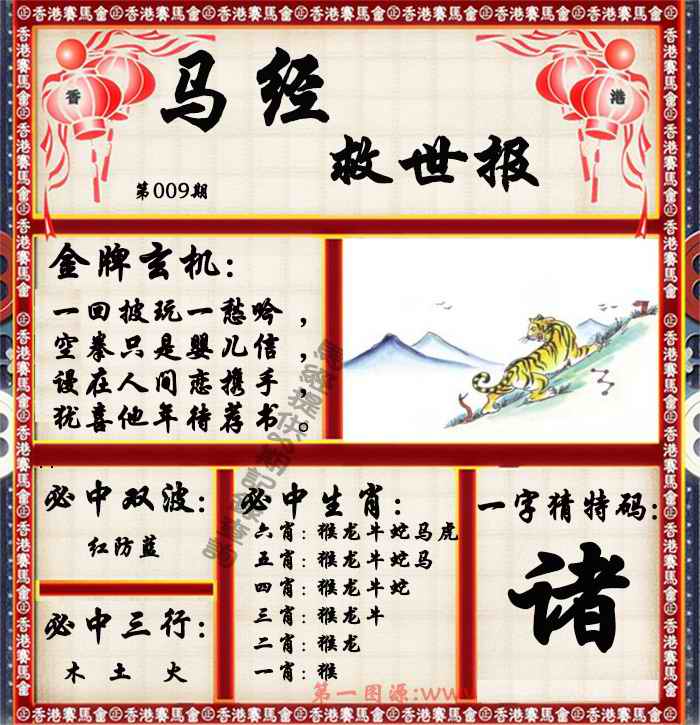 香港賽馬會
香
港
马经
救世报
第009期
金牌玄机:
一回披玩一愁吟，
空拳只是婴儿信，
谩在人间恋携手，
犹喜他年待荐书。
必中双波:
红防蓝
必中三行:
木 土 火
必中生肖:
六肖: 猴龙牛蛇马虎
五肖: 猴龙牛蛇马
四肖: 猴龙牛蛇
三肖: 猴龙牛
二肖: 猴龙
一肖: 猴
一字猜特码:
诸
第一图源:www